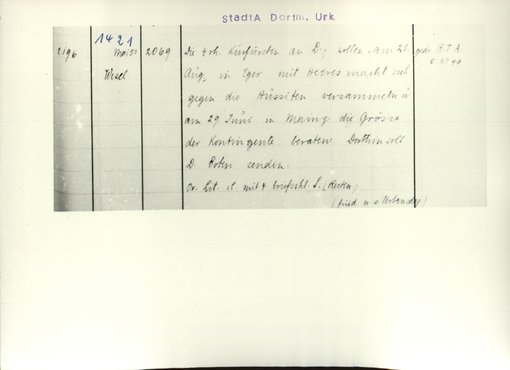 StadtA Dortm. Urk
1421
2196 Mai 30 2069 Die 4 rh. Kurfürsten an D: sollen am 23. gedr. R.T.A
Wesel Aug. in Eger mit Heeresmacht sich 8. N° 49
gegen die Hussiten versammeln u
am 29. Juni in Mainz die Grösse
der Kontingente beraten. Dorthin soll
D Boten senden.
Or. Lit. cl. mit 4 briefschl. S. (Resten)